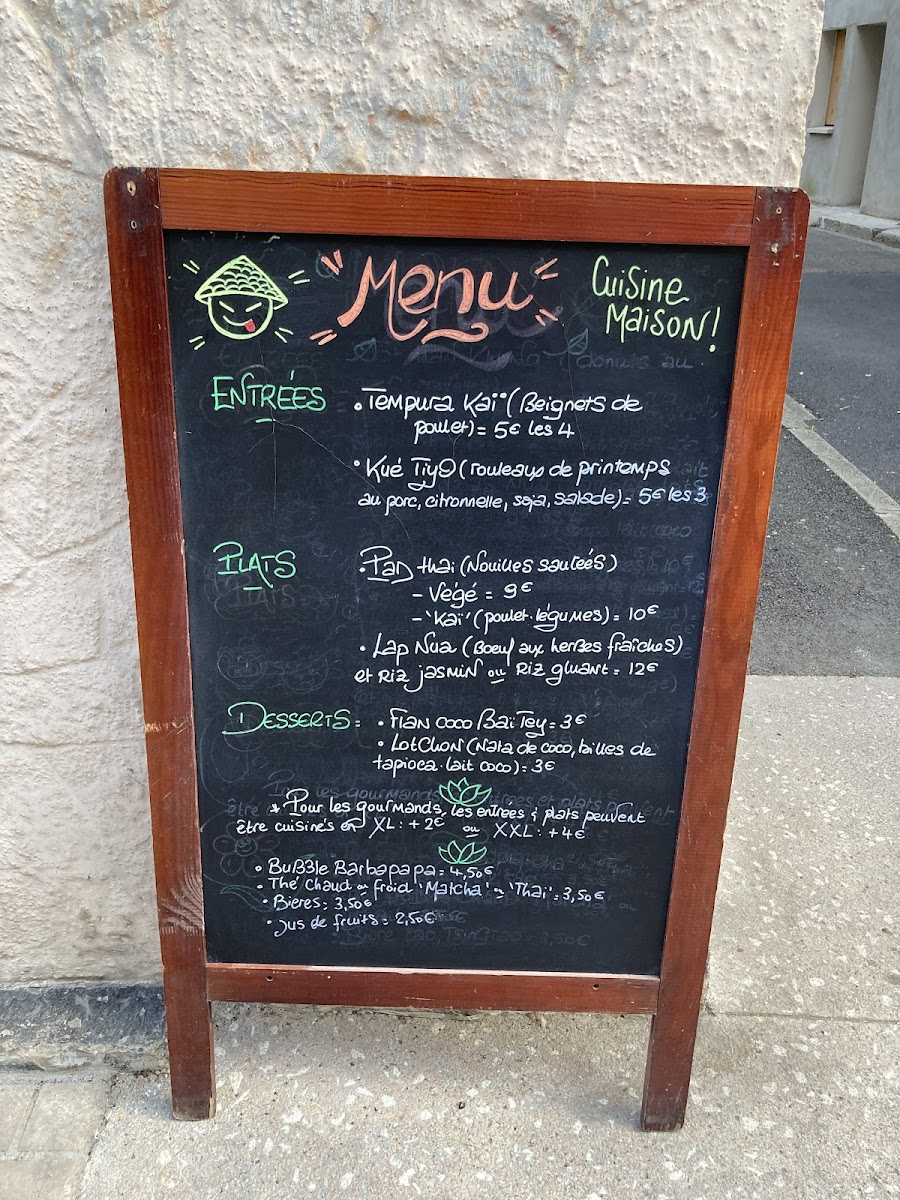 Menu
Cuisine
Maison!
Entrées
• Tempura Kaï (Beignets de
poulet) = 5€ les 4
• Kué Tiyo (rouleaux de printemps
au porc, citronnelle, soja, salade) = 5€ les 3
Plats
• Pad thai (Nouilles sautées)
- Végé = 9€
- 'Kaï' (poulet-légumes) = 10€
• Lap Nua (Boeuf aux herbes fraîches)
et Riz jasmin ou Riz gluant = 12€
Desserts = • Flan coco Baï Tey = 3€
• LotChon (Nata de coco, billes de
tapioca-lait coco) = 3€
* Pour les gourmands, les entrées & plats peuvent
être cuisinés en XL : + 2€ ou XXL : + 4€
• Bubble Barbapapa = 4,50€
• Thé chaud ou froid 'Matcha' ou 'Thaï' = 3,50€
• Bières = 3,50€
• Jus de fruits = 2,50€